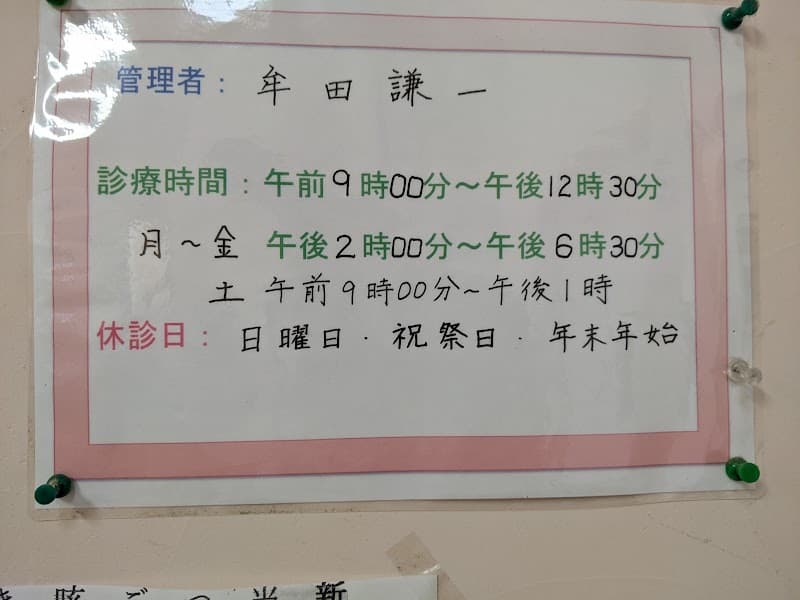 管理者： 牟田謙一
診療時間：午前9時00分～午後12時30分
月～金 午後2時00分～午後6時30分
土 午前9時00分～午後1時
休診日： 日曜日・祝祭日・年末年始